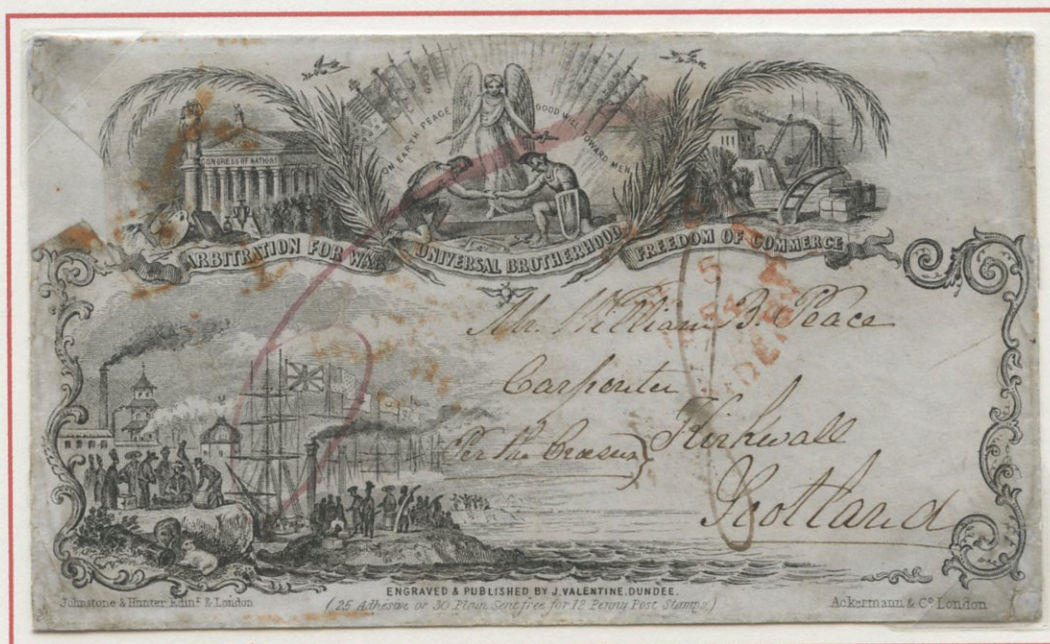 ON EARTH PEACE GOOD WILL TOWARD MEN
CONGRESS OF NATIONS
ARBITRATION FOR WAR UNIVERSAL BROTHERHOOD FREEDOM OF COMMERCE
5
Mr. William B. Peace
Carpenter
Per the Croesus} Kirkwall
Scotland
ENGRAVED & PUBLISHED BY J. VALENTINE. DUNDEE.
Johnstone & Hunter Edinr. & London
(25 Adhesive or 30 Plain Sent free for 12 Penny Post Stamps.)
Ackermann & Co. London